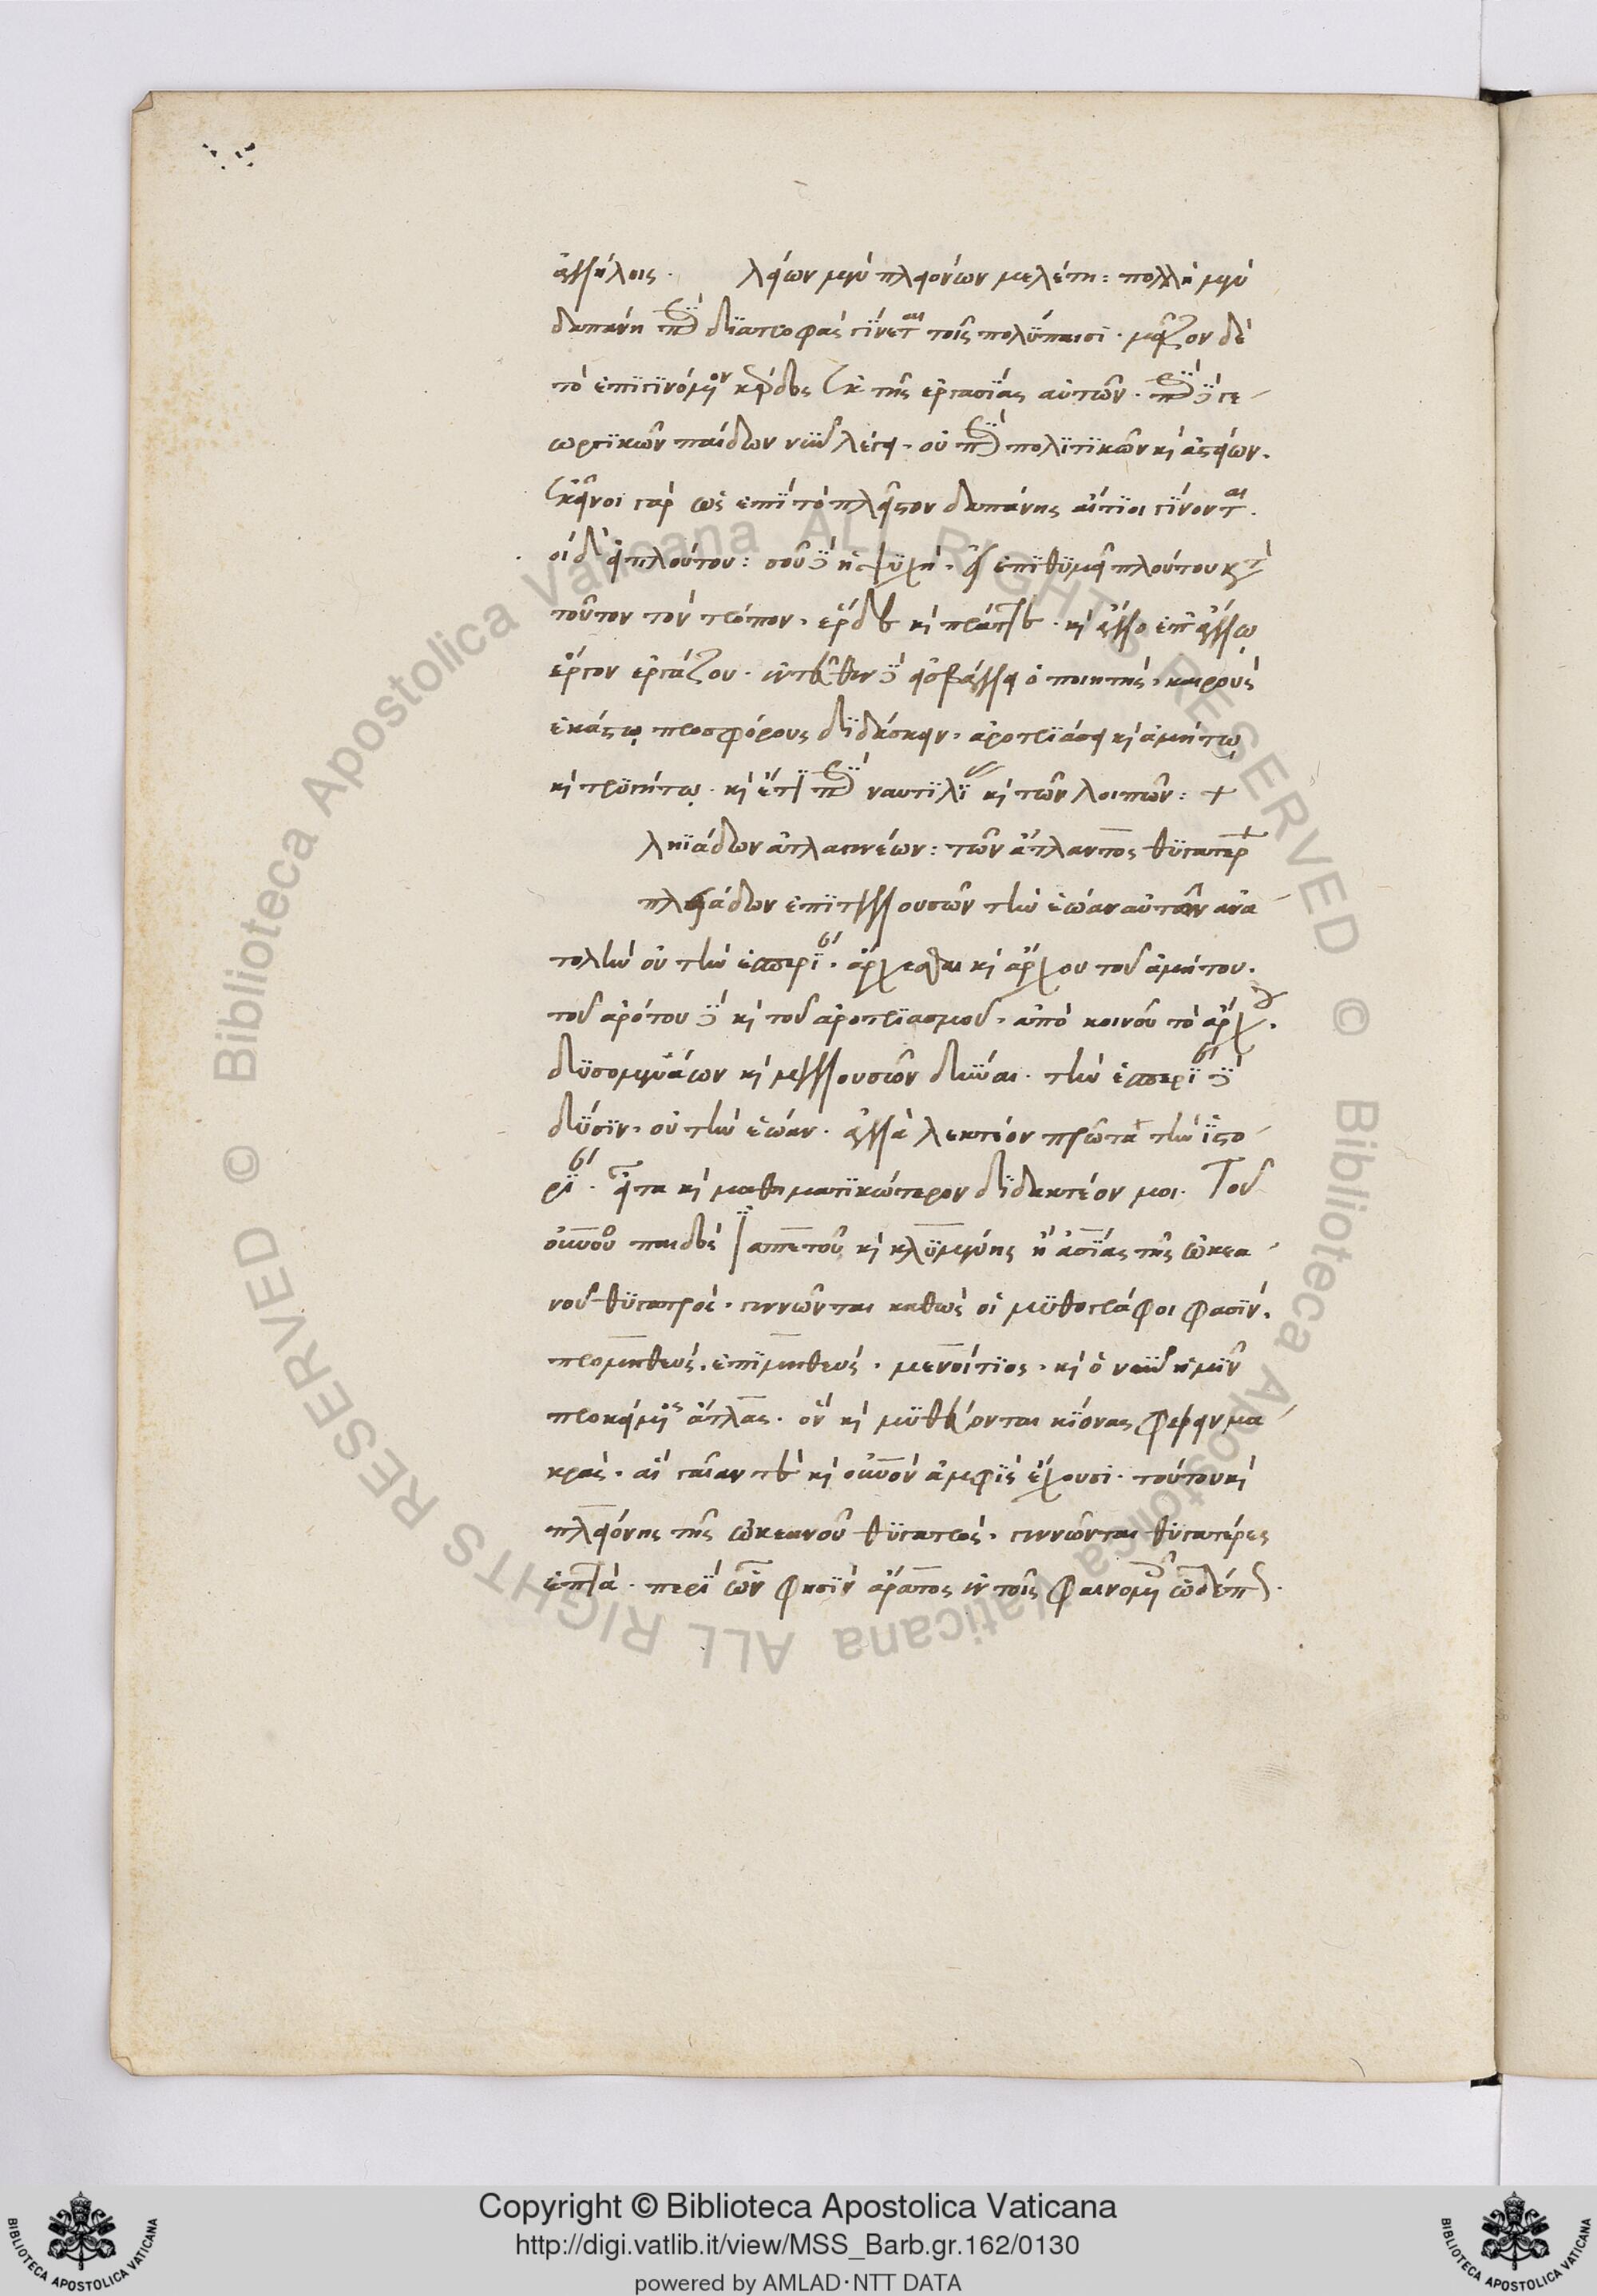 ἀλλήλοις. λείων μὲν πλεόνων μελέτη: πολλὴ μὲν
δαπάνη περὶ διατροφὰς γίνεται τοῖς πολύπαισι. μεῖζον δὲ
τὸ ἐπιγινόμενον κέρδος ἐκ τῆς ἐργασίας αὐτῶν. περὶ δὲ γε
ωργικῶν παίδων νῦν λέγει. οὐ περὶ πολιτικῶν καὶ ἀστείων.
ἐκεῖνοι γὰρ ὡς ἐπὶ τὸ πλεῖστον δαπάνης αἴτιοι γίνονται.
οἱ δ' εἰ πλούτου: σοῦ δὲ ἡ ψυχὴ. εἰ ἐπιθυμεῖ πλούτου κατὰ
τοῦτον τὸν τρόπον. ἔρδε καὶ πράττε. καὶ ἄλλο ἐπ' ἄλλω
ἔργον ἐργάζου. ἐντεῦθεν δὲ εἰσβάλλει ὁ ποιητὴς. καιροὺς
ἑκάστω προσφόρους διδάσκειν. ἀροτριάσει καὶ ἀμήτω
καὶ τρυγήτω. καὶ ἔτι περὶ ναυτιλίας καὶ τῶν λοιπῶν: +
ληϊάδων ἀτλαγενέων: τῶν ἄτλαντος θυγατέρων
πλειάδων ἐπιτελλουσῶν τὴν ἑώαν αὐτῶν ἀνα
τολὴν οὐ τὴν ἑσπερίαν. ἄρχεσθαι καὶ ἄρχου τοῦ ἀμήτου.
τοῦ ἀρότου δὲ καὶ τοῦ ἀροτριασμοῦ. ἀπὸ κοινοῦ τὸ ἄρχου.
δυσομενάων καὶ μελλουσῶν δῦναι. τὴν ἑσπερίαν δὲ
δύσιν. οὐ τὴν ἑώαν. ἀλλὰ λεκτέον πρῶτα τὴν ἱστο
ρίαν. εἶτα καὶ μαθηματικώτερον διδακτέον μοι. Τοῦ
οὐνοῦ παιδὸς Ἰαπετοῦ καὶ κλυμένης ἢ ἀσίας τῆς ὠκεα
νοῦ θυγατρὸς. γεννῶνται καθὼς οἱ μυθογράφοι φασὶν.
προμηθεὺς. ἐπιμηθεὺς. μενοίτιος. καὶ ὁ νῦν ἡμῖν
προκείμενος ἄτλας. ὃν καὶ μυθεύονται κίονας φέρειν μα
κρὰς. αἳ γαῖαν τε καὶ οὐνὸν ἀμφὶς ἔχουσι. τούτου καὶ
πλειόνης τῆς ὠκεανοῦ θυγατρὸς. γεννῶνται θυγατέρες
ἑπτὰ. περὶ ὧν φησὶν ἄρατος ἐν τοῖς φαινομένοις ὧδέ π.
Copyright © Biblioteca Apostolica Vaticana
http://digi.vatlib.it/view/MSS_Barb.gr.162/0130
powered by AMLAD·NTT DATA